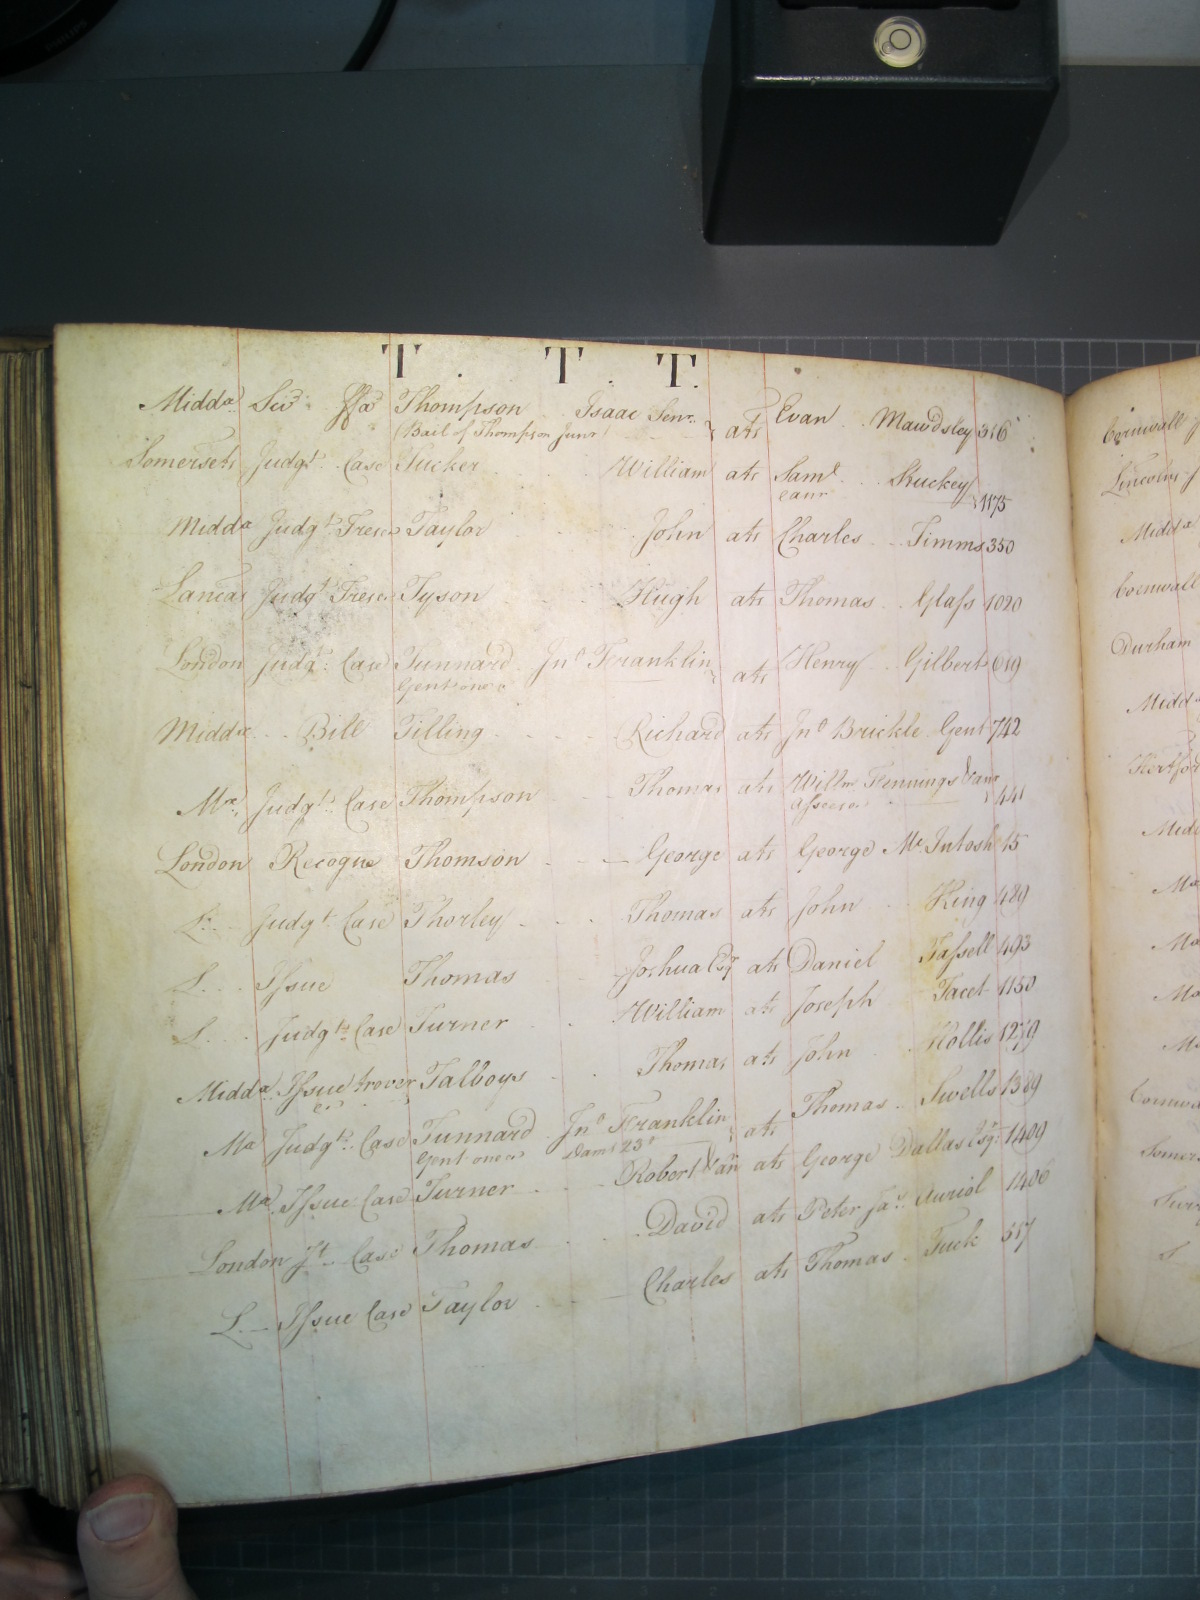 T . T . T.
Middx Sci ffa Thompson Isaac Senr. ats Evan Mawdsley 316
(Bail of Thompson Junr)
Somersets Judgt. Case Tucker William ats Saml Stuckey
1175
Midda Judgt Tresps Taylor John ats Charles Timms 350
Lancas Judgt Tresps Tyson Hugh ats Thomas Glass 1020
London Judgt. Case Tunnard Jno Franklin ats Henry Gilbert 619
Gent one &c
Midda Bill Tilling Richard ats Jno Brickle Gent 742
Ma Judgt. Case Thompson Thomas ats Willm Flennings & anr
assees &c 441
London Recogne Thomson George ats George McIntosh 15
L. Judgt Case Thorley Thomas ats John King 489
L. Issue Thomas Joshua Esqr ats Daniel Tassell 493
L. Judgt. Case Turner William ats Joseph Tacet 1150
Midda Issue trover Talboys Thomas ats John Hollis 1279
Ma Judgt. Case Tunnard Jno Franklin ats Thomas Swells 1389
Gent one &c Dams 23
Ma Issue Case Turner Robert & an ats George Dallas Esqr. 1409
London Jt Case Thomas David ats Peter Jas. Auriol 1406
L. Issue Case Taylor Charles ats Thomas Tuck 517
Cornwall
Lincolns
Midda
Cornwall
Durham
Midda
Hertford
Ma
Ma
Ma